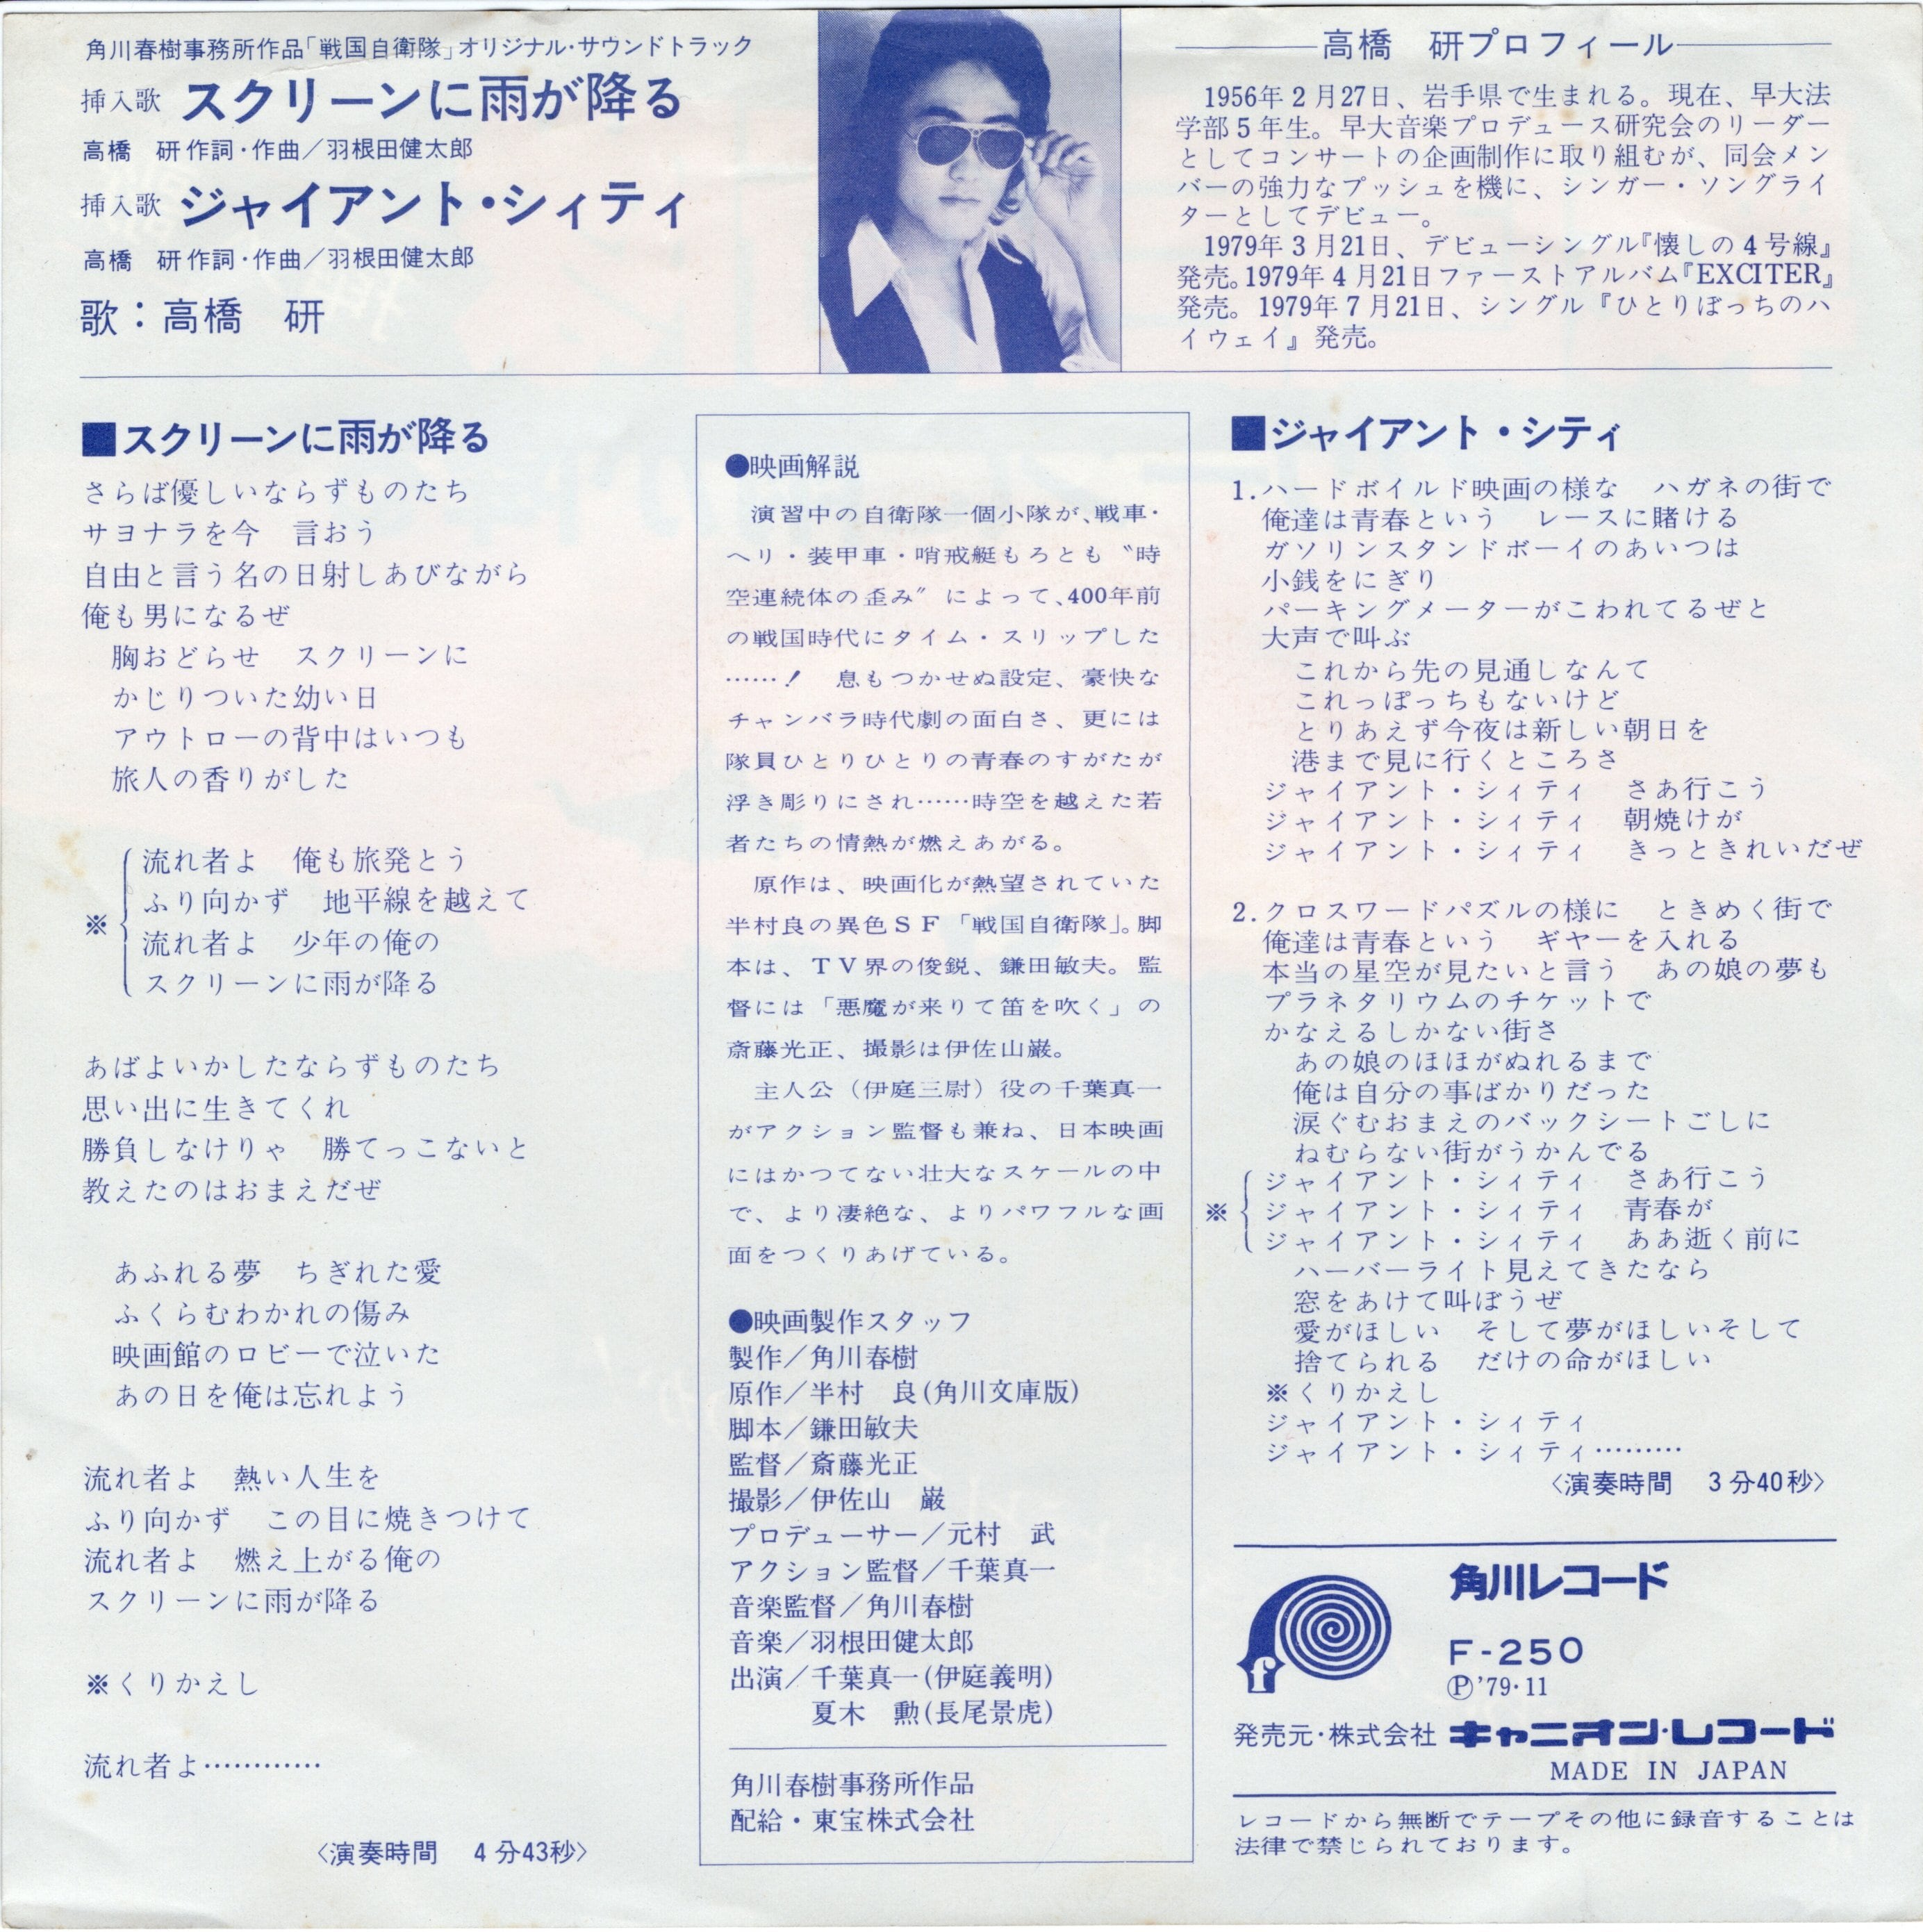 角川春樹事務所作品「戦国自衛隊」オリジナル・サウンドトラック
挿入歌 スクリーンに雨が降る
高橋　研作詞・作曲／羽根田健太郎
挿入歌 ジャイアント・シィティ
高橋　研作詞・作曲／羽根田健太郎
歌：高橋　研
高橋　研プロフィール
1956年2月27日、岩手県で生まれる。現在、早大法
学部5年生。早大音楽プロデュース研究会のリーダー
としてコンサートの企画制作に取り組むが、同会メン
バーの強力なプッシュを機に、シンガー・ソングライ
ターとしてデビュー。
1979年3月21日、デビューシングル『懐しの4号線』
発売。1979年4月21日ファーストアルバム『EXCITER』
発売。1979年7月21日、シングル『ひとりぼっちのハ
イウェイ』発売。
■スクリーンに雨が降る
さらば優しいならずものたち
サヨナラを今　言おう
自由と言う名の日射しあびながら
俺も男になるぜ
胸おどらせ　スクリーンに
かじりついた幼い日
アウトローの背中はいつも
旅人の香りがした
流れ者よ　俺も旅発とう
ふり向かず　地平線を越えて
※
流れ者よ　少年の俺の
スクリーンに雨が降る
あばよいかしたならずものたち
思い出に生きてくれ
勝負しなけりゃ　勝てっこないと
教えたのはおまえだぜ
あふれる夢　ちぎれた愛
ふくらむわかれの傷み
映画館のロビーで泣いた
あの日を俺は忘れよう
流れ者よ　熱い人生を
ふり向かず　この目に焼きつけて
流れ者よ　燃え上がる俺の
スクリーンに雨が降る
※くりかえし
流れ者よ…………
〈演奏時間　4分43秒〉
●映画解説
演習中の自衛隊一個小隊が、戦車・
ヘリ・装甲車・哨戒艇もろとも〝時
空連続体の歪み〟によって、400年前
の戦国時代にタイム・スリップした
……！　息もつかせぬ設定、豪快な
チャンバラ時代劇の面白さ、更には
隊員ひとりひとりの青春のすがたが
浮き彫りにされ……時空を越えた若
者たちの情熱が燃えあがる。
原作は、映画化が熱望されていた
半村良の異色ＳＦ「戦国自衛隊」。脚
本は、ＴＶ界の俊鋭、鎌田敏夫。監
督には「悪魔が来りて笛を吹く」の
斎藤光正、撮影は伊佐山巌。
主人公（伊庭三尉）役の千葉真一
がアクション監督も兼ね、日本映画
にはかつてない壮大なスケールの中
で、より凄絶な、よりパワフルな画
面をつくりあげている。
●映画製作スタッフ
製作／角川春樹
原作／半村　良(角川文庫版)
脚本／鎌田敏夫
監督／斎藤光正
撮影／伊佐山　巌
プロデューサー／元村　武
アクション監督／千葉真一
音楽監督／角川春樹
音楽／羽根田健太郎
出演／千葉真一(伊庭義明)
夏木　勲(長尾景虎)
角川春樹事務所作品
配給・東宝株式会社
■ジャイアント・シティ
1. ハードボイルド映画の様な　ハガネの街で
俺達は青春という　レースに賭ける
ガソリンスタンドボーイのあいつは
小銭をにぎり
パーキングメーターがこわれてるぜと
大声で叫ぶ
これから先の見通しなんて
これっぽっちもないけど
とりあえず今夜は新しい朝日を
港まで見に行くところさ
ジャイアント・シィティ　さあ行こう
ジャイアント・シィティ　朝焼けが
ジャイアント・シィティ　きっときれいだぜ
2. クロスワードパズルの様に　ときめく街で
俺達は青春という　ギヤーを入れる
本当の星空が見たいと言う　あの娘の夢も
プラネタリウムのチケットで
かなえるしかない街さ
あの娘のほほがぬれるまで
俺は自分の事ばかりだった
涙ぐむおまえのバックシートごしに
ねむらない街がうかんでる
ジャイアント・シィティ　さあ行こう
※ ジャイアント・シィティ　青春が
ジャイアント・シィティ　ああ逝く前に
ハーバーライト見えてきたなら
窓をあけて叫ぼうぜ
愛がほしい　そして夢がほしいそして
捨てられる　だけの命がほしい
※くりかえし
ジャイアント・シィティ
ジャイアント・シィティ………
〈演奏時間　3分40秒〉
f
角川レコード
F-250
Ⓟ'79・11
発売元・株式会社 キャニオン・レコード
MADE IN JAPAN
レコードから無断でテープその他に録音することは
法律で禁じられております。